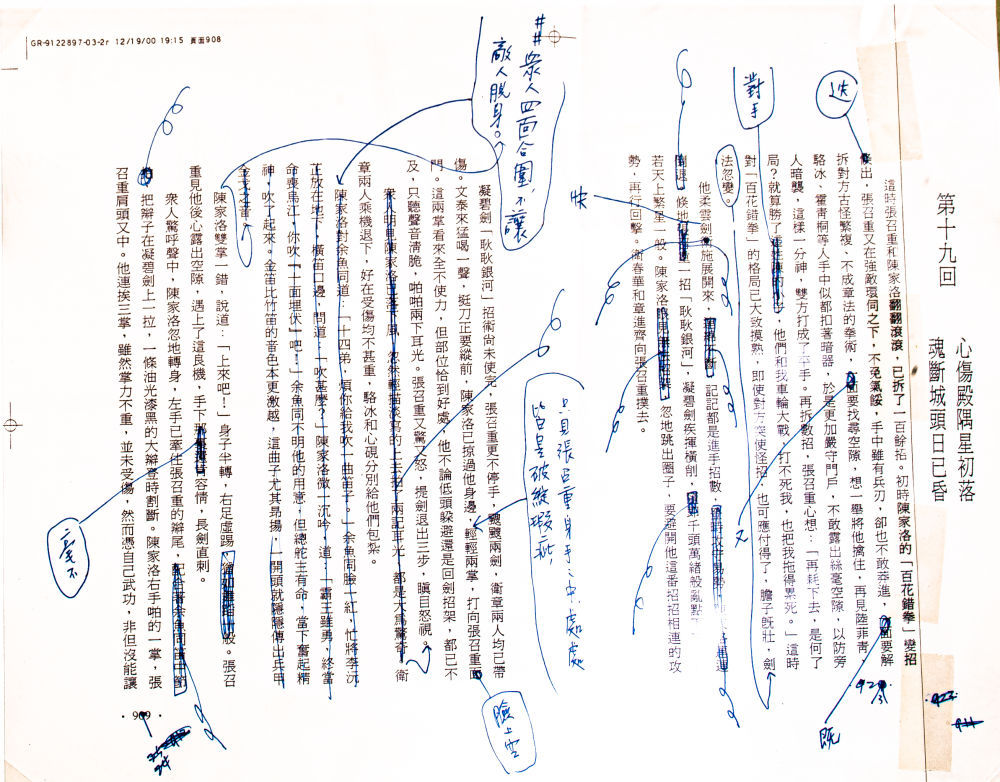 GR-9122897-03-2r 12/19/00 19:15 頁面908
第十九回
心傷殿隅星初落
魂斷城頭日已昏
這時張召重和陳家洛翻翻滾滾，已拆了一百餘招。初時陳家洛的「百花錯拳」變招
出，張召重又在強敵環伺之下，不免氣餒，手中雖有兵刃，卻也不敢莽進，面要解
迭
既
拆對方古怪繁複、不成章法的拳術，面要找尋空隙，想一舉將他擒住，再見陸菲青、
駱冰、霍青桐等人手中似都扣著暗器，於是更加嚴守門戶，不敢露出絲毫空隙，以防旁
又
人暗襲，這樣一分神，雙方打成了平手。再拆數招，張召重心想：「再耗下去，是何了
局？就算勝了小子，他們和我車輪大戰，打不死我，也把我拖得累死。」這時
對手
對「百花錯拳」的格局已大致摸熟，即使對方突使怪招，也可應付得了，膽子既壯，劍
法忽變。
他柔雲劍術施展開來，記記都是進手招數，
快
倏地一招「耿耿銀河」，凝碧劍疾橫削，千頭萬緒般亂點，
若天上繁星一般。陳家洛忽地跳出圈子，要避開他這番招招相連的攻
勢，再行回擊。衛春華和章進齊向張召重撲去。
井井衆人四面合圍，不讓
敵人脫身。
凝碧劍「耿耿銀河」招術尚未使完，張召重更不停手，颼颼兩劍，衛章兩人均已帶
傷。文泰來猛喝一聲，挺刀正要縱前，陳家洛已掠過他身邊，輕輕兩掌，打向張召重面
只見張召重身手之中處處
皆是破綻瑕疵，
臉上空
門。這兩掌看來全不使力，但部位恰到好處，他不論低頭躲避還是回劍招架，都已不
及，只聽聲音清脆，啪啪兩下耳光。張召重又驚又怒，提劍退出三步，瞋目怒視。
衆人明見陳家洛已落下風，忽然輕描淡寫的上去拍了兩記耳光，都是大為驚奇，衛
章兩人乘機退下，好在受傷均不甚重，駱冰和心硯分別給他們包紮。
陳家洛對余魚同道：「十四弟，煩你給我吹一曲笛子。」余魚同臉一紅，忙將李沅
芷放在地下，橫笛口邊，問道：「吹甚麼？」陳家洛微一沉吟，道：「霸王雖勇，終當
命喪烏江，你吹『十面埋伏』吧！」余魚同不明他的用意，但總舵主有命，當下奮起精
神，吹了起來。金笛比竹笛的音色本更激越，這曲子尤其昂揚，一開頭就隱隱傳出兵甲
金戈之音。
陳家洛雙掌一錯，說道：「上來吧！」身子半轉，右足虛踢，張召
重見他後心露出空隙，遇上了這良機，手下容情，長劍直刺。
毫不
衆人驚呼聲中，陳家洛忽地轉身，左手已牽住張召重的辮尾，
把辮子在凝碧劍上一拉，一條油光漆黑的大辮登時割斷。陳家洛右手啪的一掌，張
召重肩頭又中。他連挨三掌，雖然掌力不重，並未受傷，然而憑自己武功，非但沒能讓